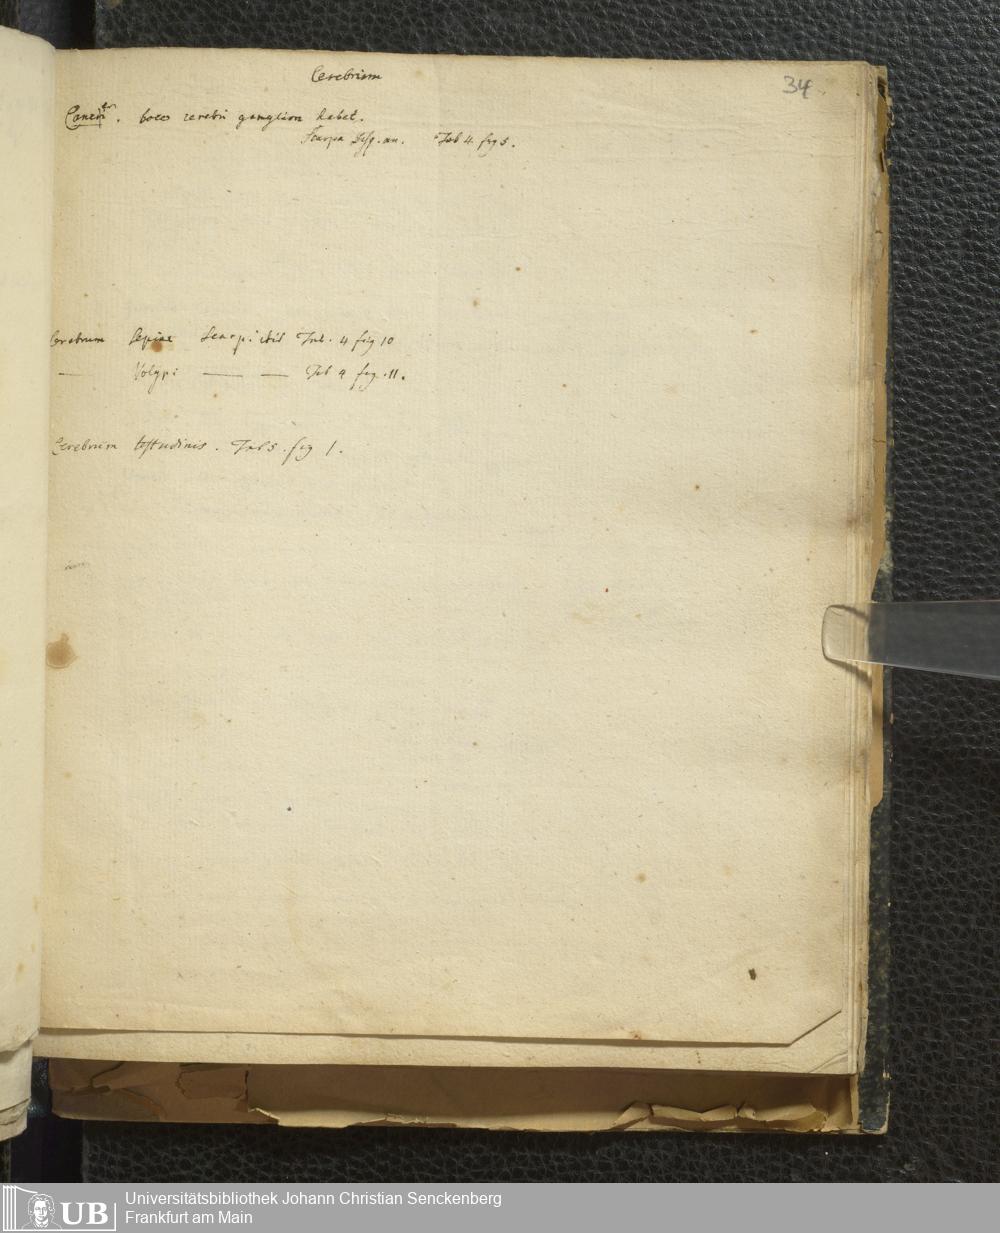 Cerebrum
34
Cancri. loco cerebri ganglion habet.
Scarpa Disq. an. Tab 4. fig 5.
Cerebrum Sepiae Scarp. ibid Tab. 4 fig 10
— Polypi — — Tab 4 fig. 11.
Cerebrum testudinis. Tab 5. fig 1.
UB
Universitätsbibliothek Johann Christian Senckenberg
Frankfurt am Main